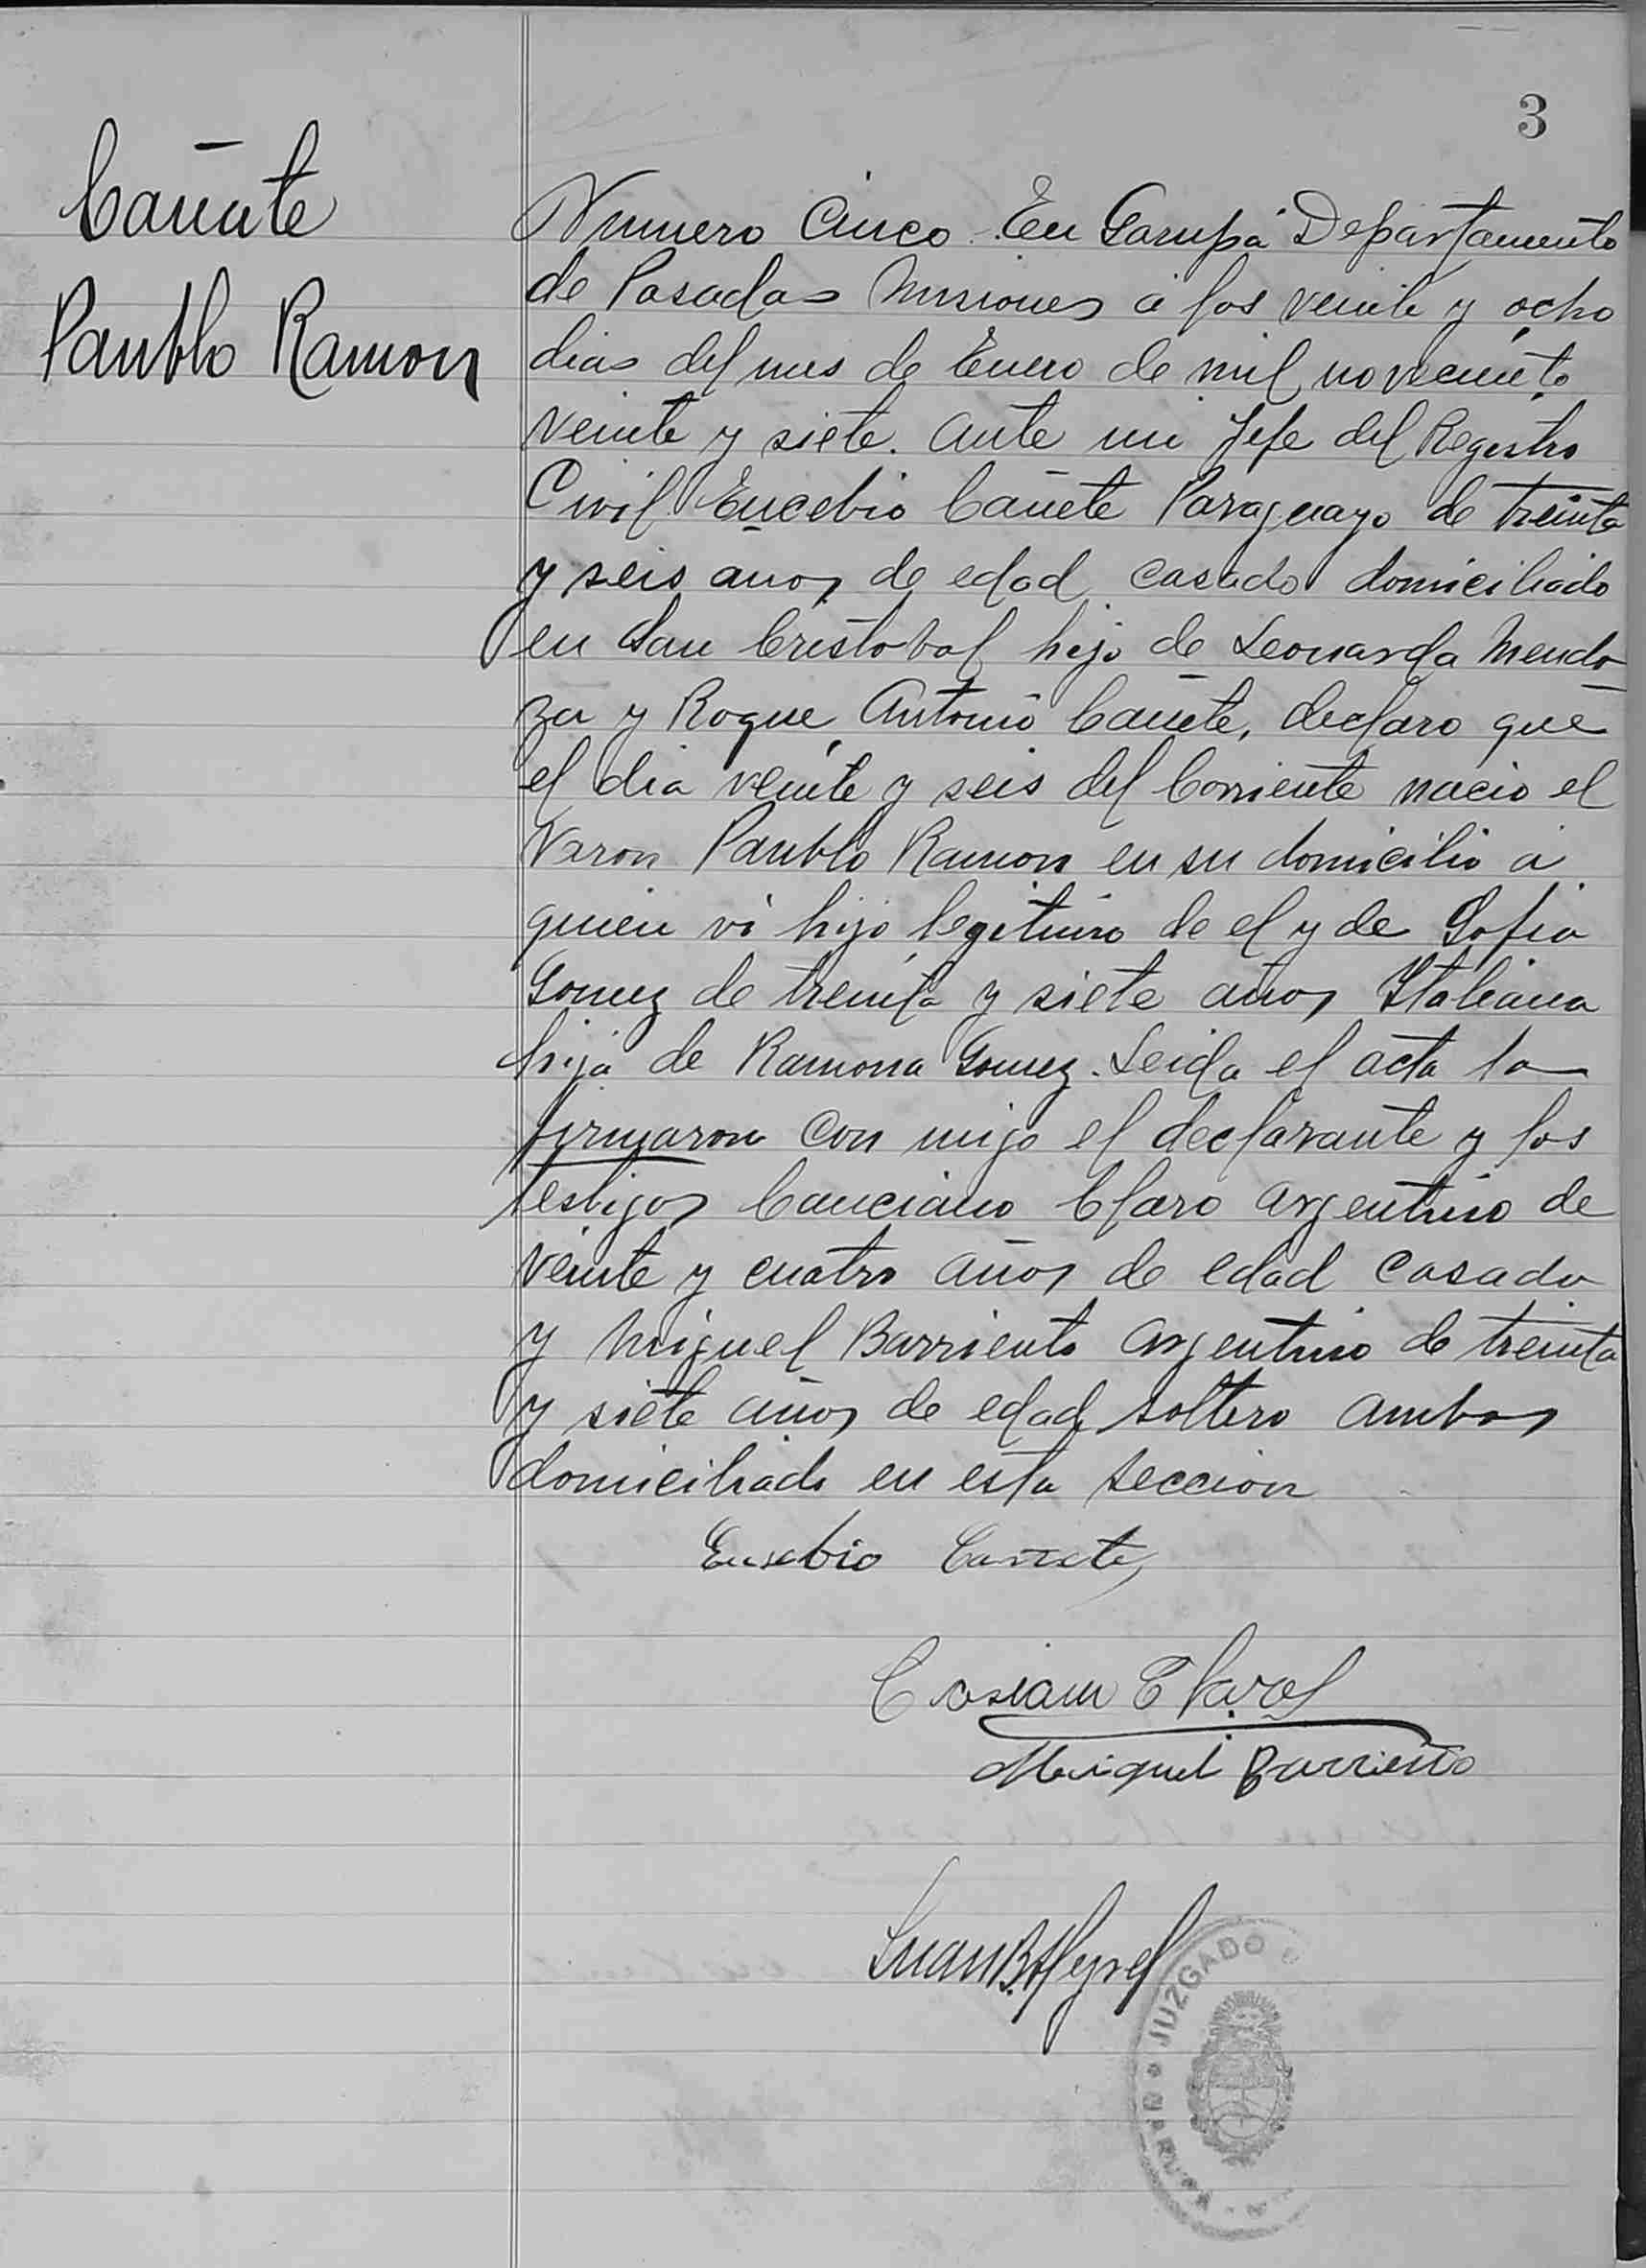 3
Cañete
Paublo Ramon
Numero Cinco. En Garupá Departamento
de Posadas Misiones á los veinte y ocho
dias del mes de Enero de mil noveciento
veinte y siete. Ante mi Jefe del Registro
Civil Eucebio Cañete Paraguayo de treinta
y seis años de edad casado domiciliado
en San Cristobal hijo de Leonarda Mendo
za y Roque Antonio Cañete, declaro que
el dia veinte y seis del Corriente nacio el
Varon Paublo Ramon en su domicilio á
quien vi hijo legitimo de el y de Sofia
Gomez de treinta y siete años Italiana
hija de Ramona Gomez. Leida el acta la
firmaron con migo el declarante y los
testigos Canciano Claro argentino de
veinte y cuatro años de edad casado
y Miguel Barriento argentino de treinta
y siete años de edad soltero ambos
domiciliado en esta seccion
Eusebio Cañete
Miguel Barriento
Juan B.
JUZGADO
GARUPA